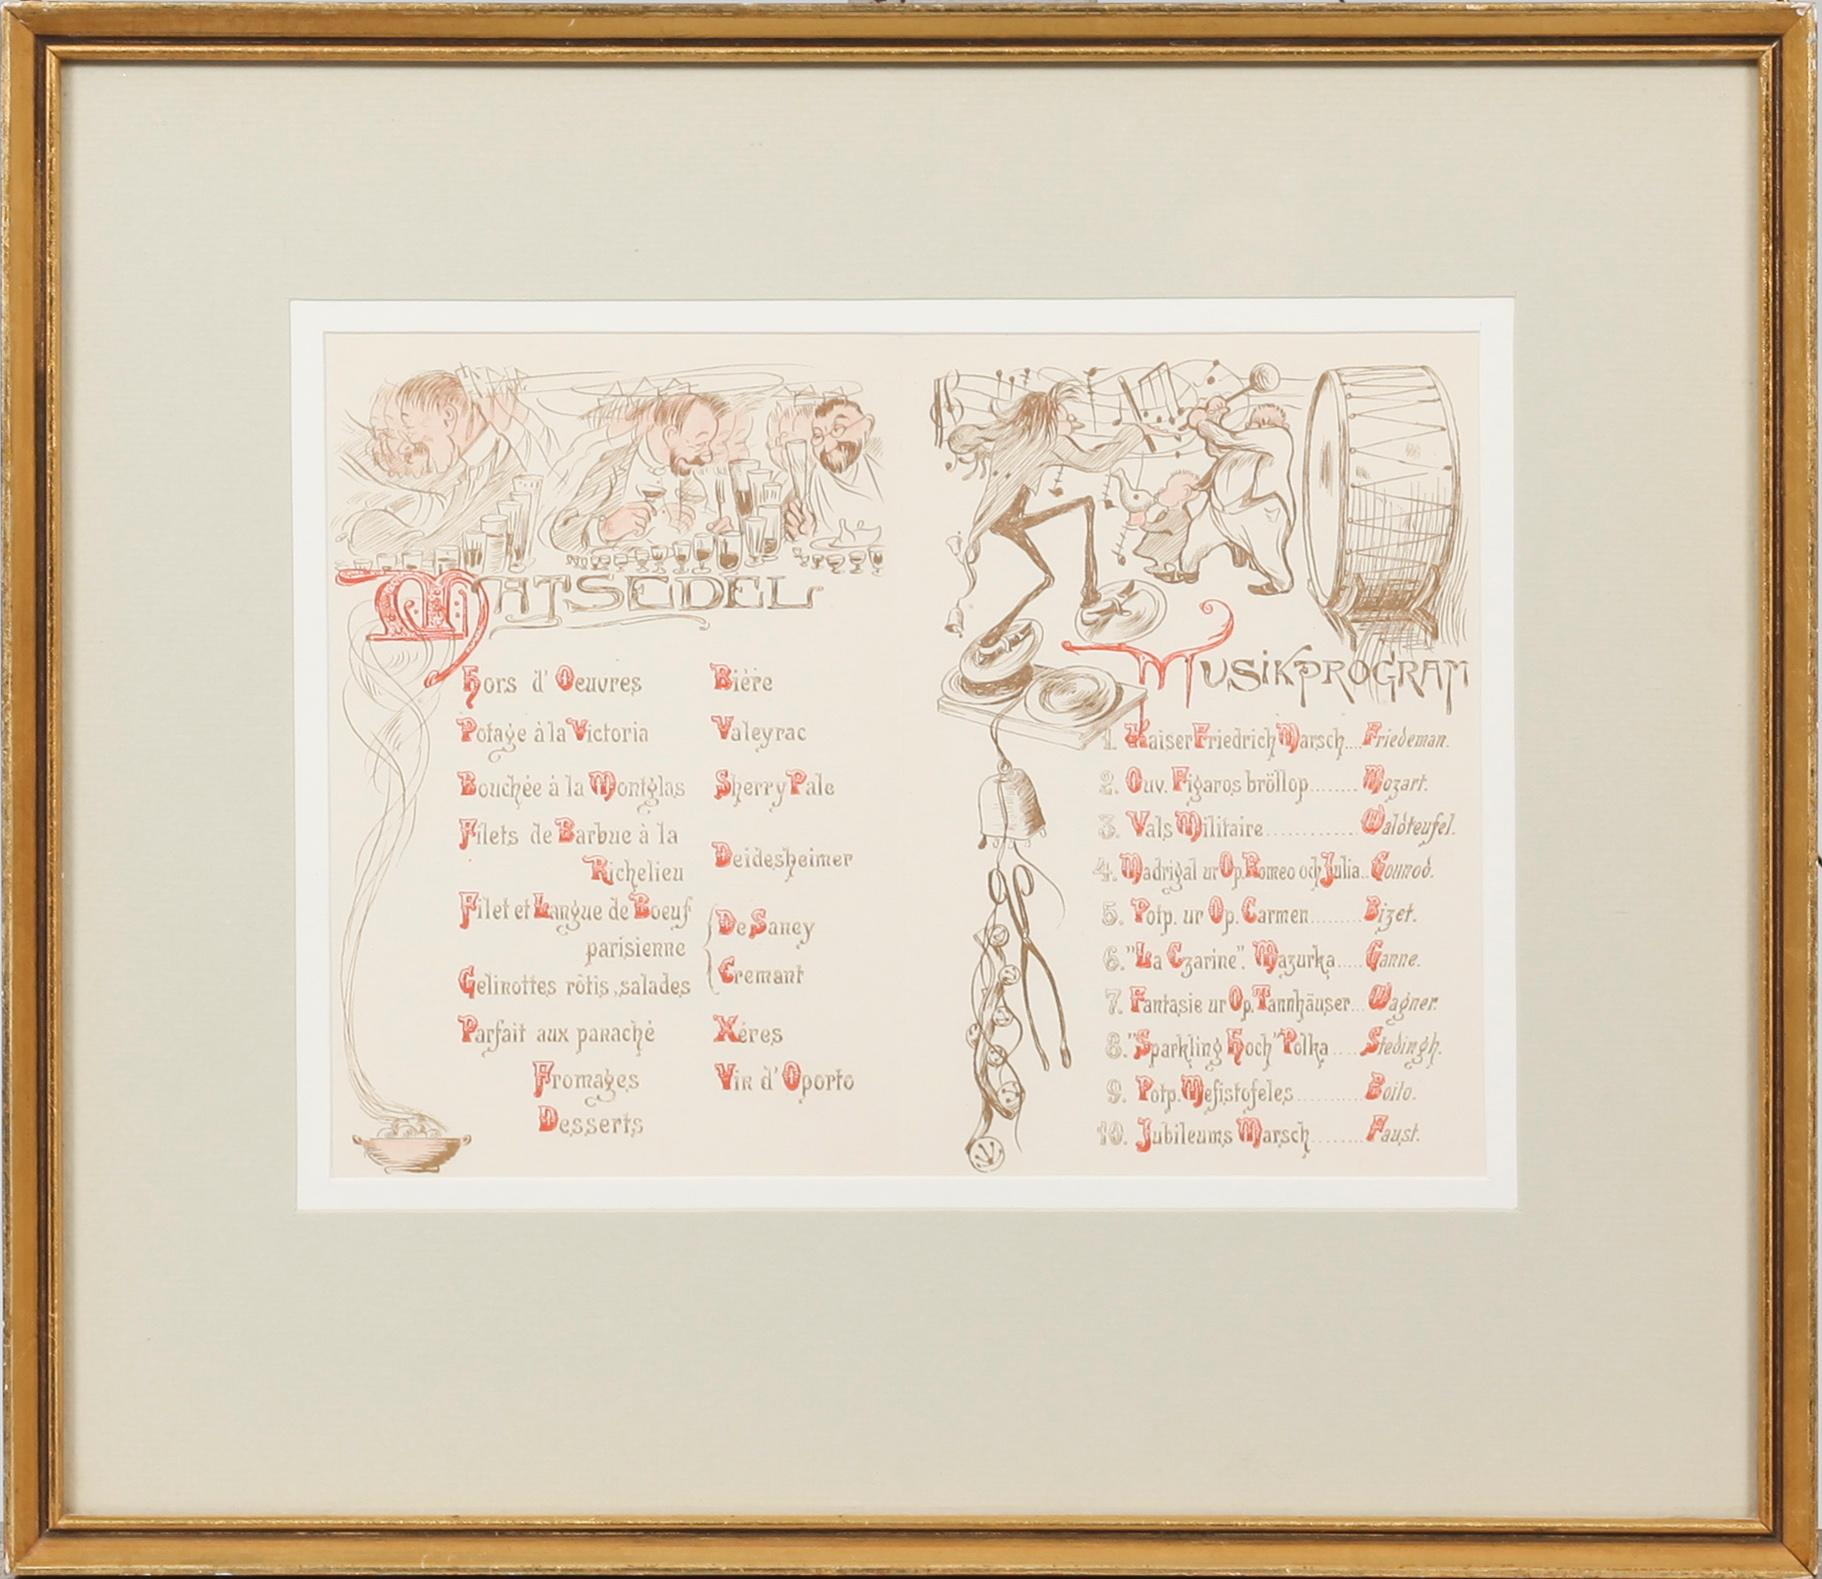 MATSEDEL
Hors d' Oeuvres
Potage à la Victoria
Bouchée à la Montglas
Filets de Barbue à la
Richelieu
Filet et Langue de Boeuf
parisienne
Gelinottes rôtis, salades
Parfait aux panaché
Fromages
Desserts
Bière
Valeyrac
Sherry Pale
Deidesheimer
De Saney
Cremant
Xéres
Vin d' Oporto
MUSIKPROGRAM
1. Kaiser Friedrich Marsch.... Friedeman.
2. Ouv. Figaros bröllop........ Mozart.
3. Vals Militaire............ Waldteufel.
4. Madrigal ur Op. Romeo och Julia.. Gounod.
5. Potp. ur Op. Carmen........ Bizet.
6. "La Czarine". Mazurka..... Ganne.
7. Fantasie ur Op. Tannhäuser... Wagner.
8. "Sparkling Hoch" Polka.... Stedingh.
9. Potp. Mefistofeles.......... Boito.
10. Jubileums Marsch........ Faust.